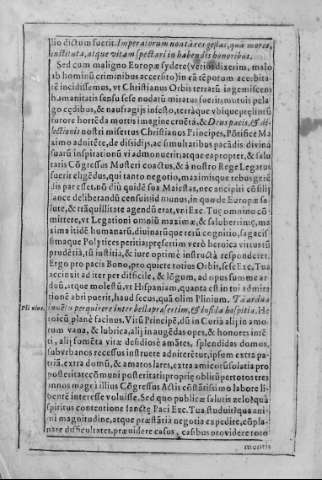 lio dictum fuerit. Imperatorum non tã res gestas, quã mores,
instituta, atque vitam spectari in habendis honoribus.
Sed cum maligno Europæ sydere (verius dixerim, malo
ab hominũ criminibus accersito) in eũ tẽporum acerbita
tẽ incidissemus, vt Christianus Orbis terrarũ ingemiscens
humanitatis sensu sese nudatũ miratus fuerit: mutuis pela
go cædibus, & naufragijs infesto, terrãque vbique plenũ
furore horrẽda mortis imagine cruẽta, & Deus pacis, & di-
lectionis nostri misertus Christianos Principes, Põtifice Ma
ximo adnitẽte, de dissidijs, ac simultatibus pacãdis divina
suarũ inspirationũ vi admonuerit, atque eapropter, & salu
taris Cõgressus Mosteri coactus, & à nostro Rege Legatus
fuerit eligẽdus, qui tanto negotio, maximisque rebus gerẽ
dis par esset, nõ diũ quidẽ sua Maiestas, nec ancipiti cõsilij
lance deliberandũ censuit: id munus, in quo de Europæ sa
lute, & trãquillitate agendũ erat, vni Exc. Tuę omnino cõ
mittere, vt Legationi omniũ maximæ, & saluberrimę, ma
xima itidẽ humanarũ, divinarũque rerũ cognitio, sagacis
simaque Polytices peritia: præsertim verò heroica virtutũ
prudẽtia, iustitia, & iure optimè instructa responderet.
Ergo pro pacis Bono, pro quiete totius Orbis, sese Exc. Tua
accinxit ad iter per difficile, & lõgum, ad opus summe ar
duũ, atque molestũ, vt Hispaniam, quanta est in toi admira
tionẽ abi puerit, haud secus, quã olim Plinium. Ta ardua
Plinius. inuẽto perquirere inter bella præsertim, & infida hospitia. He
roicũ planè facinus. Vitũ Principẽ, dũ in Curia alij in amo
rum vana, & lubrica, alij in augẽdas opes, & honores inẽ
ti, alij somẽta vitæ desidiosè amãtes, splendidas domos,
suburbanos recessus instruere adniterẽtur, ipsum extra pa
triã, extra domũ, & amatos lares, extra amicorũ solatia pro
posteritate cõmuni posteritatis propriæ obliuũ per totos tres
annos magis illius Cõgressus Actis cõstãtissimo labore li-
bente interesse voluisse. Sed quo publicæ salutis zelo? qua
spiritus contentione sanctę Paci Exc. Tua studuit? qua ani-
mi magnitudine, atque præstãtia negotia expedire, cũpla-
nare difficultates, præuidere casus, casibus providere toto